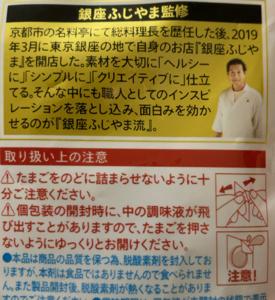 銀座ふじやま監修
京都市の名料亭にて総料理長を歴任した後。2019
年3月に東京銀座の地で自身のお店『銀座ふじや
ま』を開店した。素材を大切に「ヘルシー
に」「シンプルに」「クリエイティブに」仕立
てる。そんな中にも職人としてのインス
ピレーションを落とし込み、面白みを効
かせるのが『銀座ふじやま流』。
取り扱い上の注意
⚠たまごをのどに詰まらせないように十
分ご注意ください。
⚠個包装の開封時に、中の調味液が飛
び出すことがありますので、たまごを押さ
ないようにゆっくりとお開けください。
注意!
●本品は商品の品質を保つ為、脱酸素剤を封入してお
りますが、本剤は食品ではありませんので食べられませ
ん。また製品開封後、脱酸素剤が熱くなることがありま